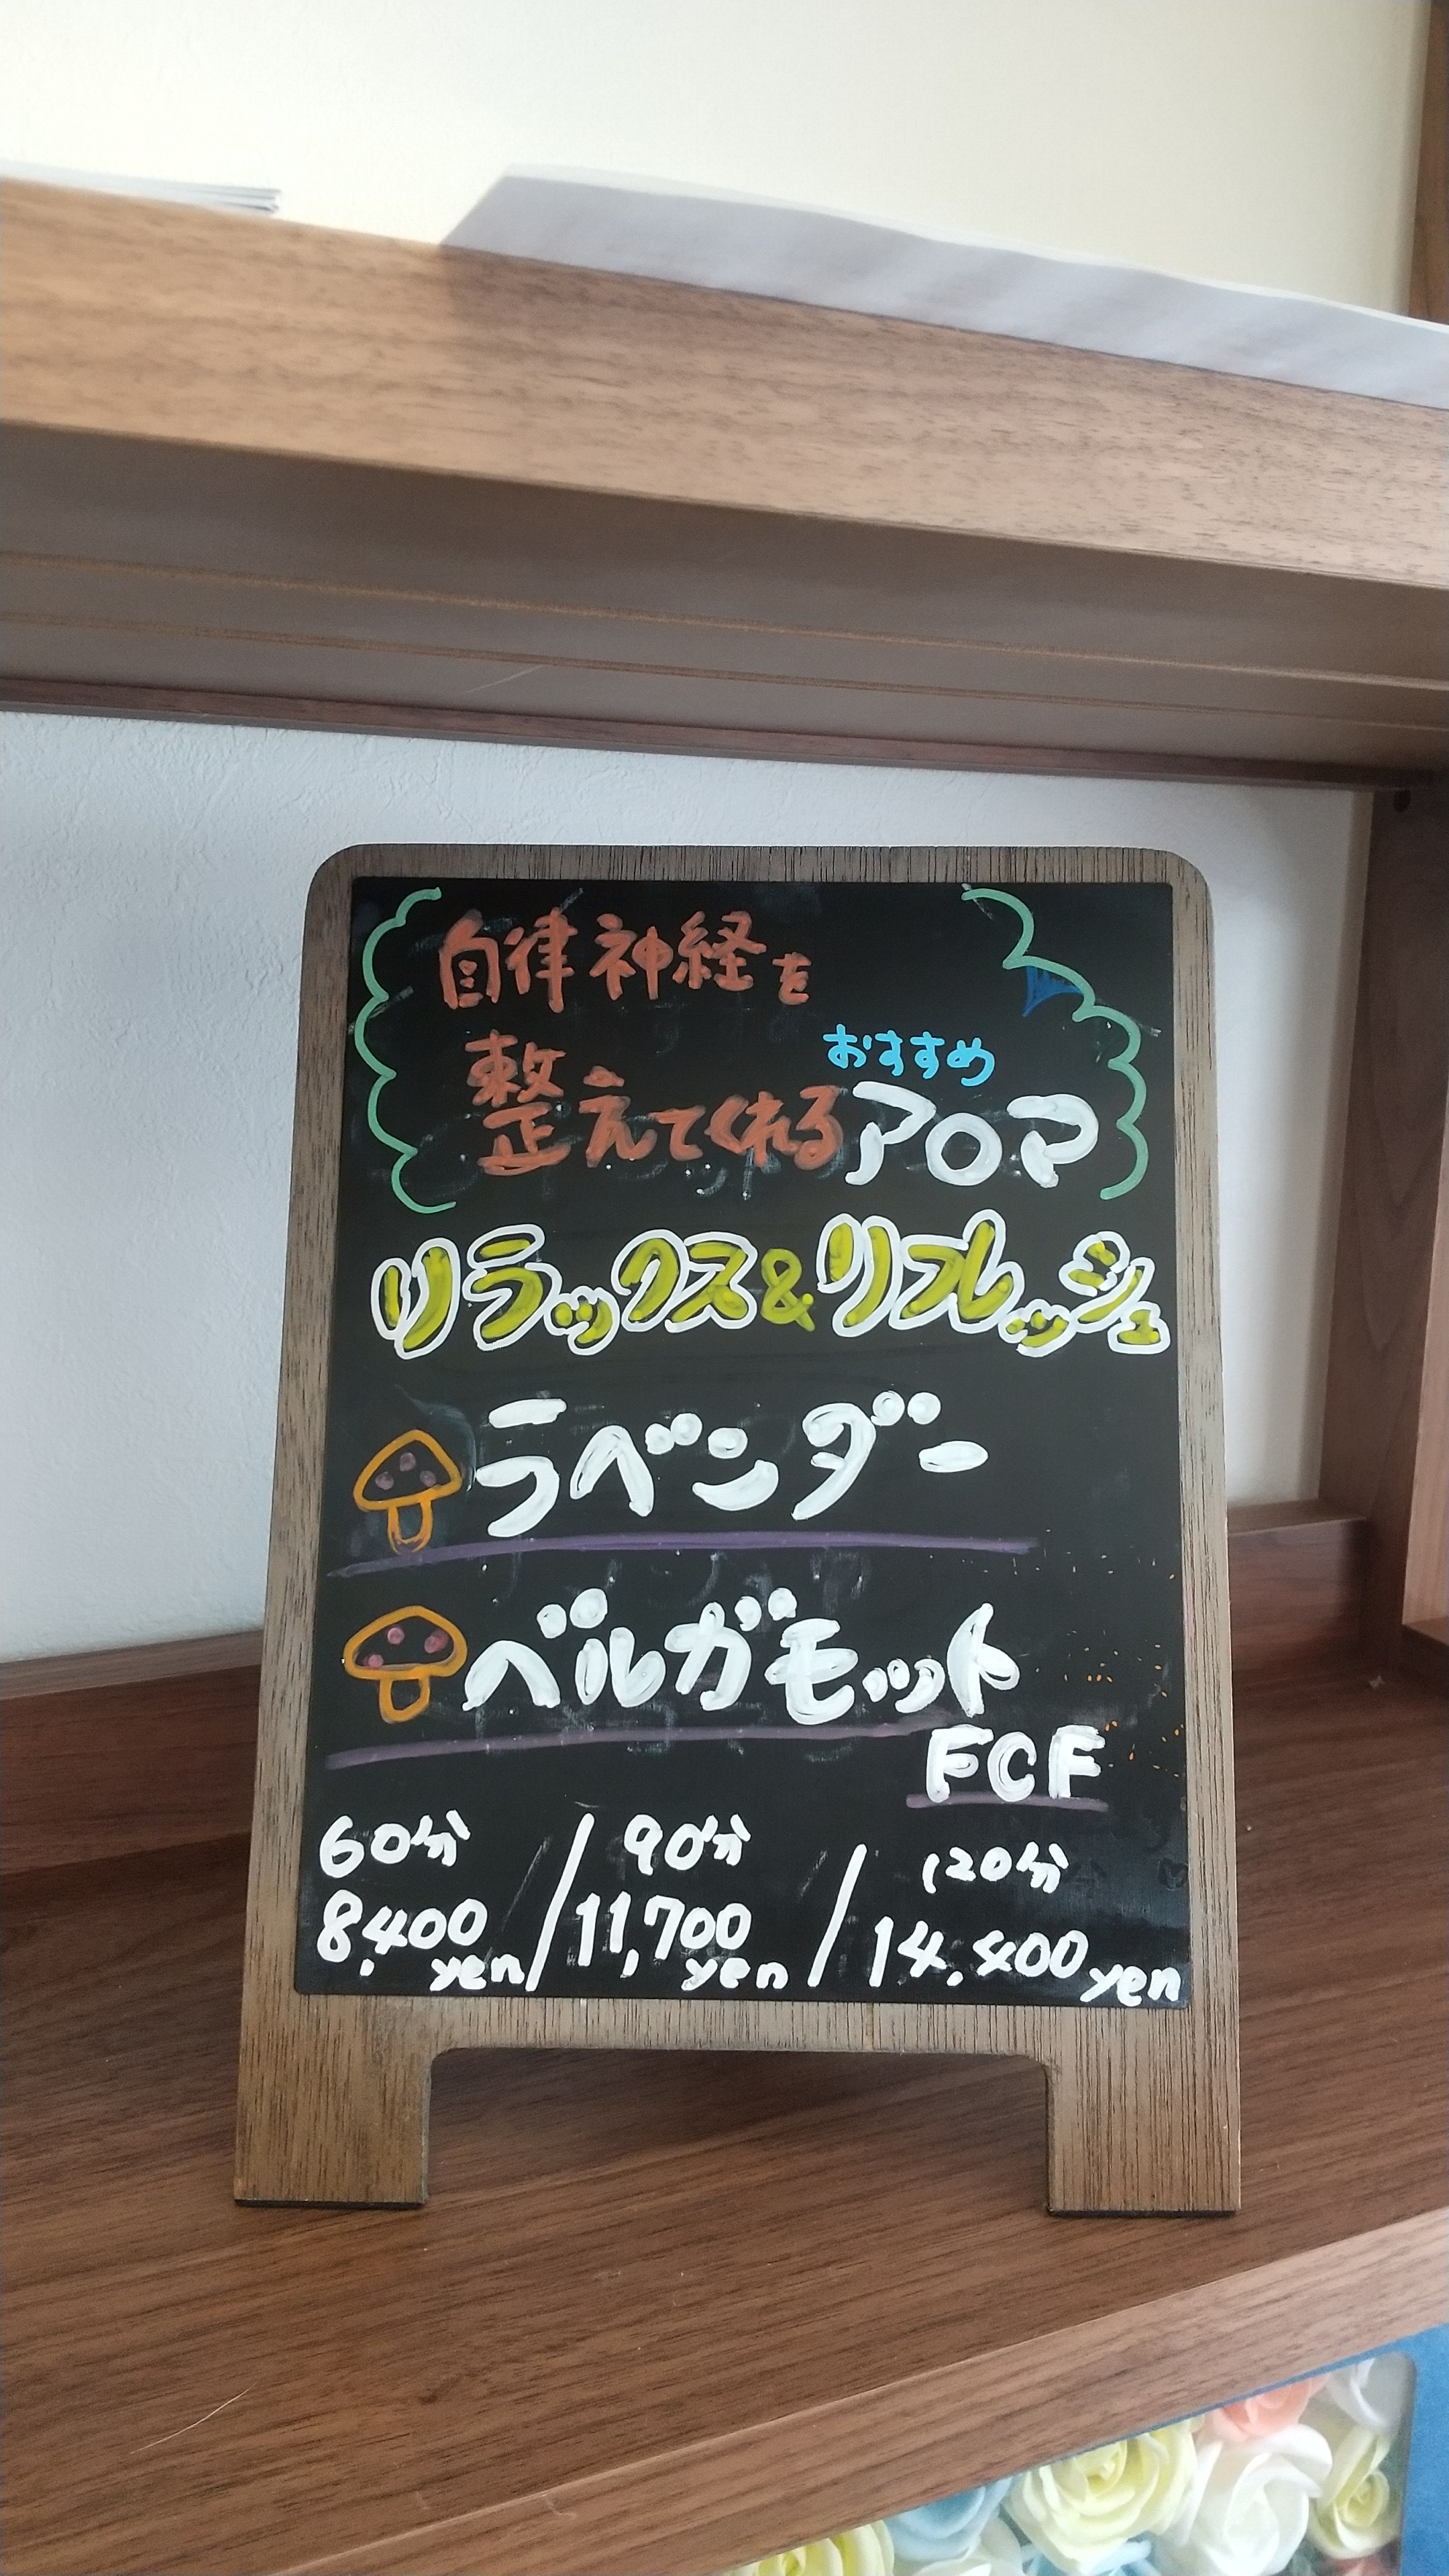 自律神経を
おすすめ
整えてくれるアロマ
リラックス&リフレッシュ
ラベンダー
ベルガモット
FCF
60分 / 90分 / 120分
8,400yen / 11,700yen / 14,400yen